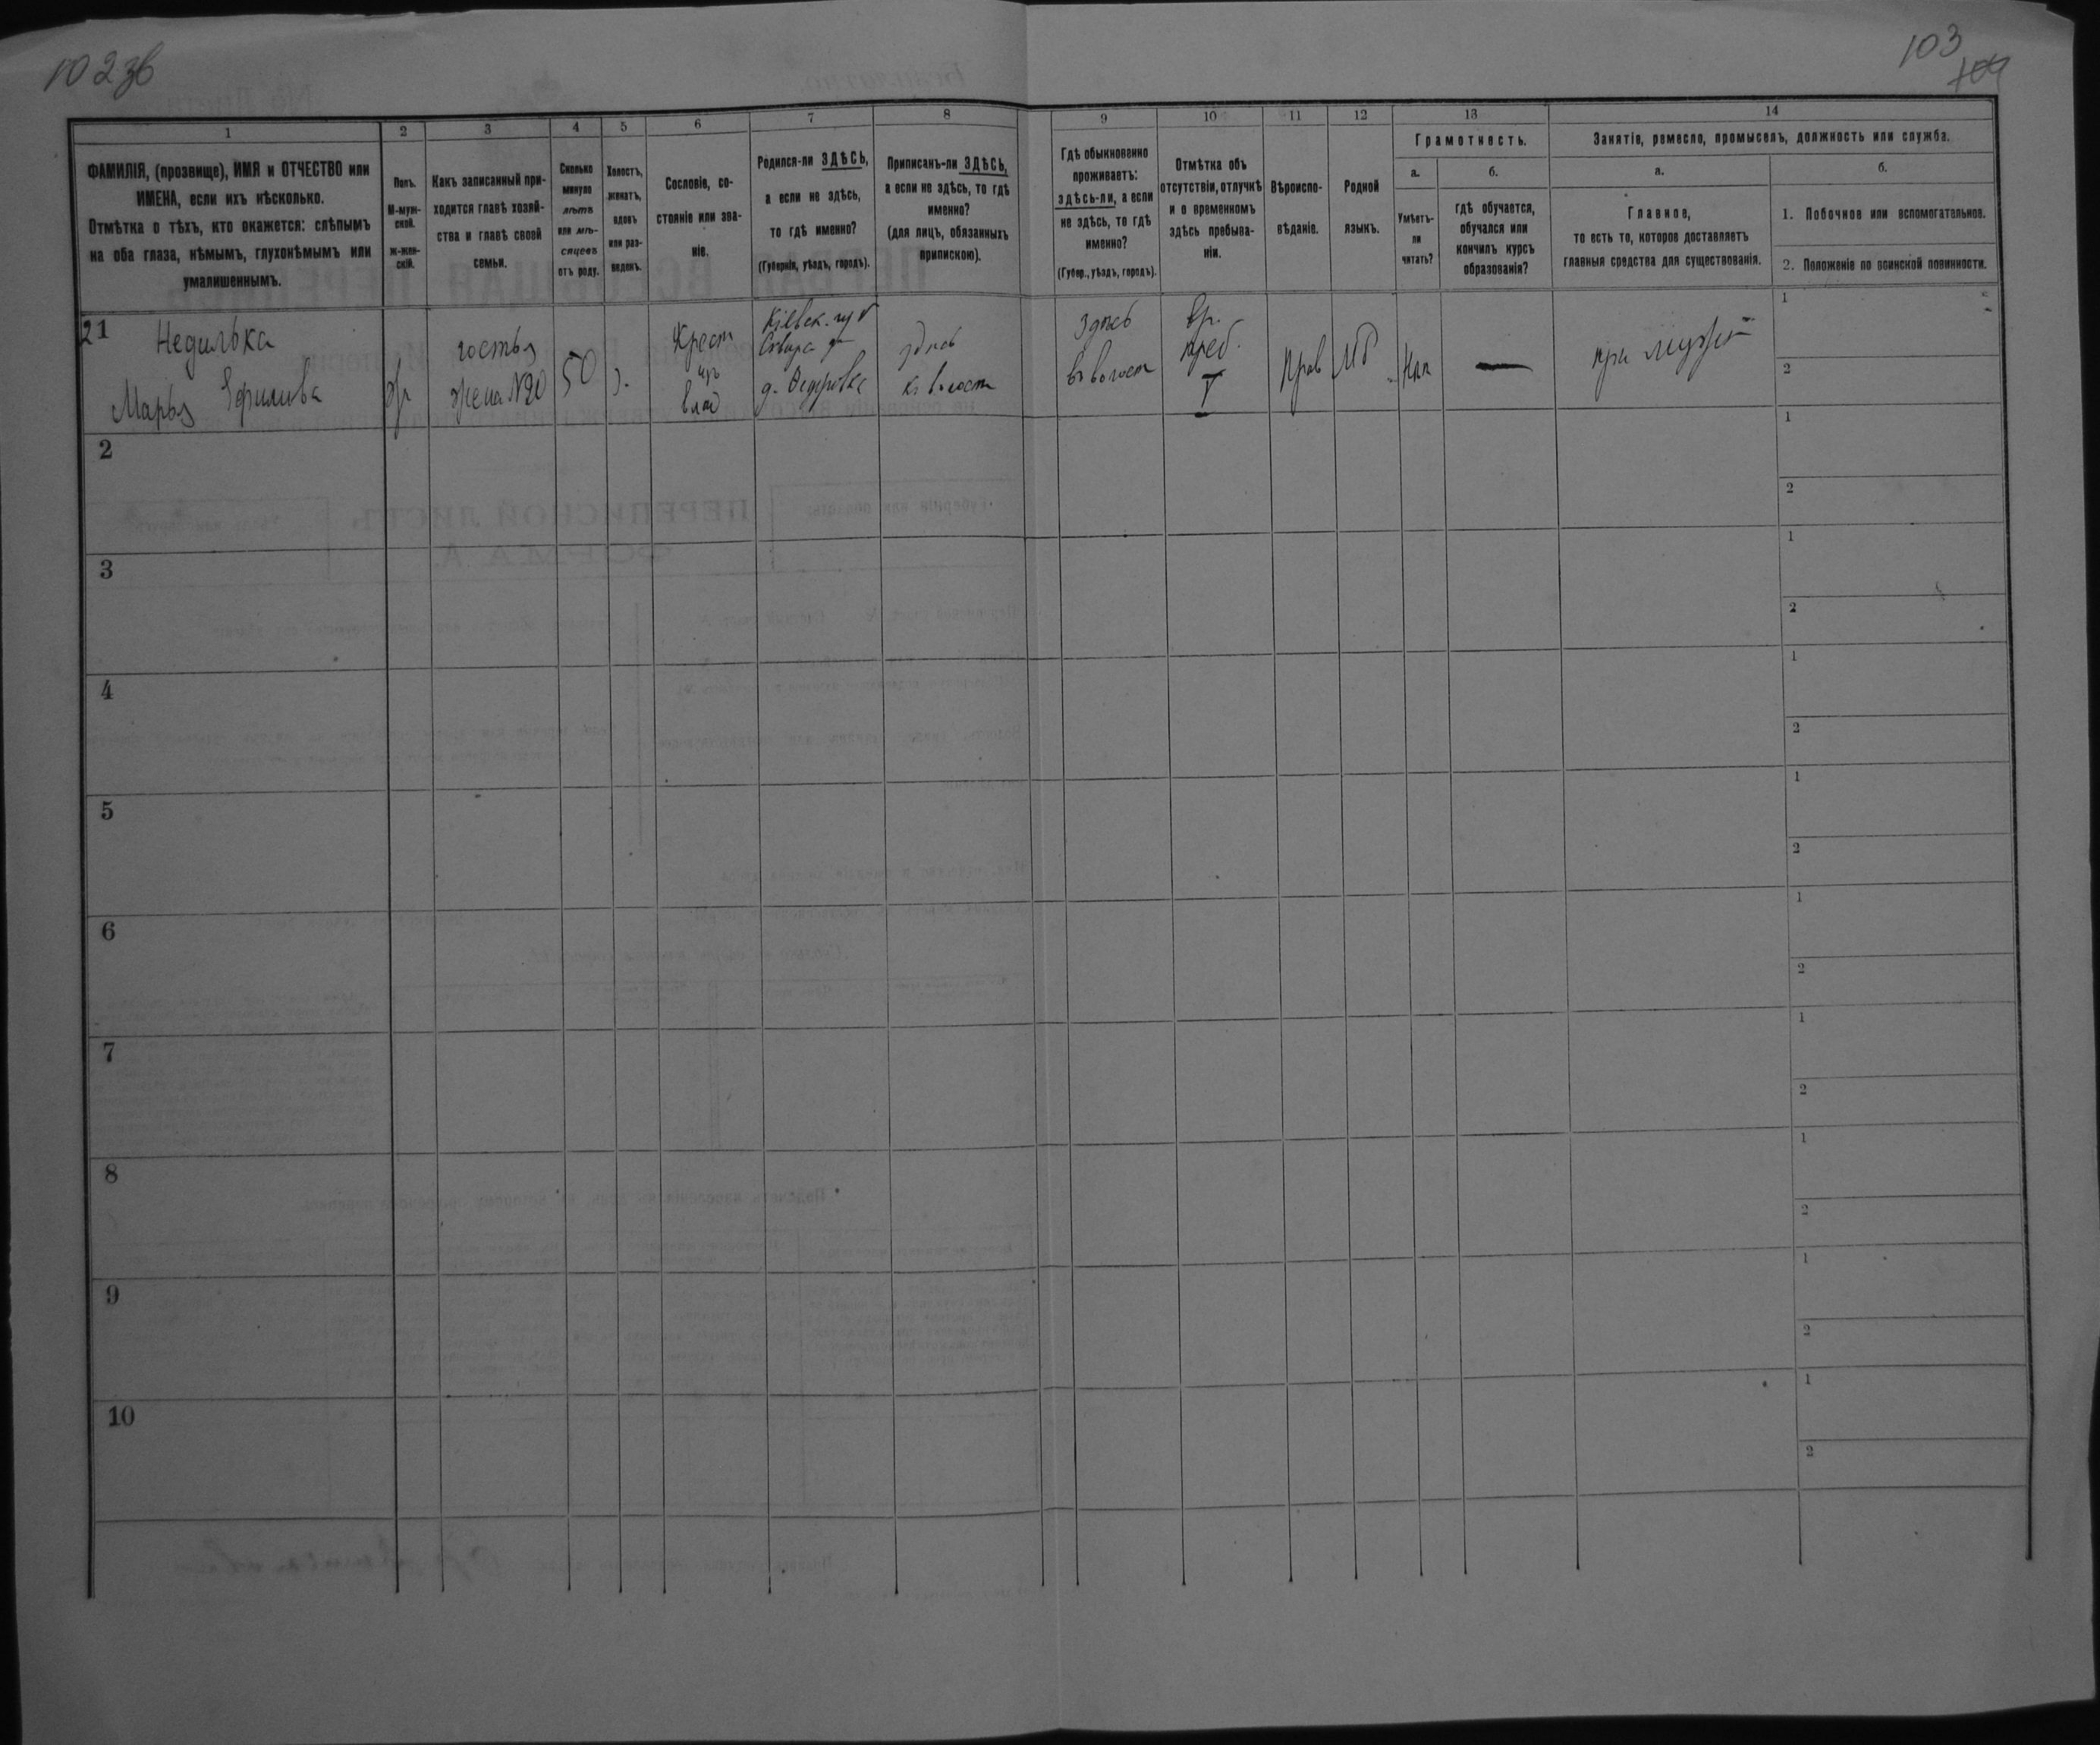 102зв
103
104
1
2
3
4
5
6
7
8
9
10
11
12
13
14
ФАМИЛІЯ, (прозвище), ИМЯ и ОТЧЕСТВО или
ИМЕНА, если ихъ нѣсколько.
Отмѣтка о тѣхъ, кто окажется: слѣпымъ
на оба глаза, нѣмымъ, глухонѣмымъ или
умалишеннымъ.
Полъ.
М-муж-
ской.
Ж-жен-
скій.
Какъ записанный при-
ходится главѣ хозяй-
ства и главѣ своей
семьи.
Сколько
минуло
лѣтъ
или мѣ-
сяцевъ
отъ роду.
Холостъ,
женатъ,
вдовъ
или раз-
веденъ.
Сословіе, со-
стояніе или зва-
ніе.
Родился-ли ЗДѢСЬ,
а если не здѣсь,
то гдѣ именно?
(Губернія, уѣздъ, городъ).
Приписанъ-ли ЗДѢСЬ,
а если не здѣсь, то гдѣ
именно?
(для лицъ, обязанныхъ
припискою).
Гдѣ обыкновенно
проживаетъ:
здѣсь-ли, а если
не здѣсь, то гдѣ
именно?
(Губер., уѣздъ, городъ).
Отмѣтка объ
отсутствіи, отлучкѣ
и о временномъ
здѣсь пребыва-
ніи.
Вѣроиспо-
вѣданіе.
Родной
языкъ.
Грамотность.
а.
Умѣетъ-
ли
читать?
б.
гдѣ обучается,
обучался или
кончилъ курсъ
образованія?
Занятія, ремесло, промыселъ, должность или служба.
а.
Главное,
то есть то, которое доставляетъ
главныя средства для существованія.
б.
1. Побочное или вспомогательное.
2. Положеніе по воинской повинности.
21
Недилька
Марья
ж
гостья
жена №20
50
з.
Крест
изъ
влад
Кіевск. губ
Сквира у
здѣсь
въ волост
здѣсь
въ волост
Вр.
преб.
Прав
МР
Нѣт
—
при мужѣ
1
2
2
1
2
3
1
2
4
1
2
5
1
2
6
1
2
7
1
2
8
1
2
9
1
2
10
1
2